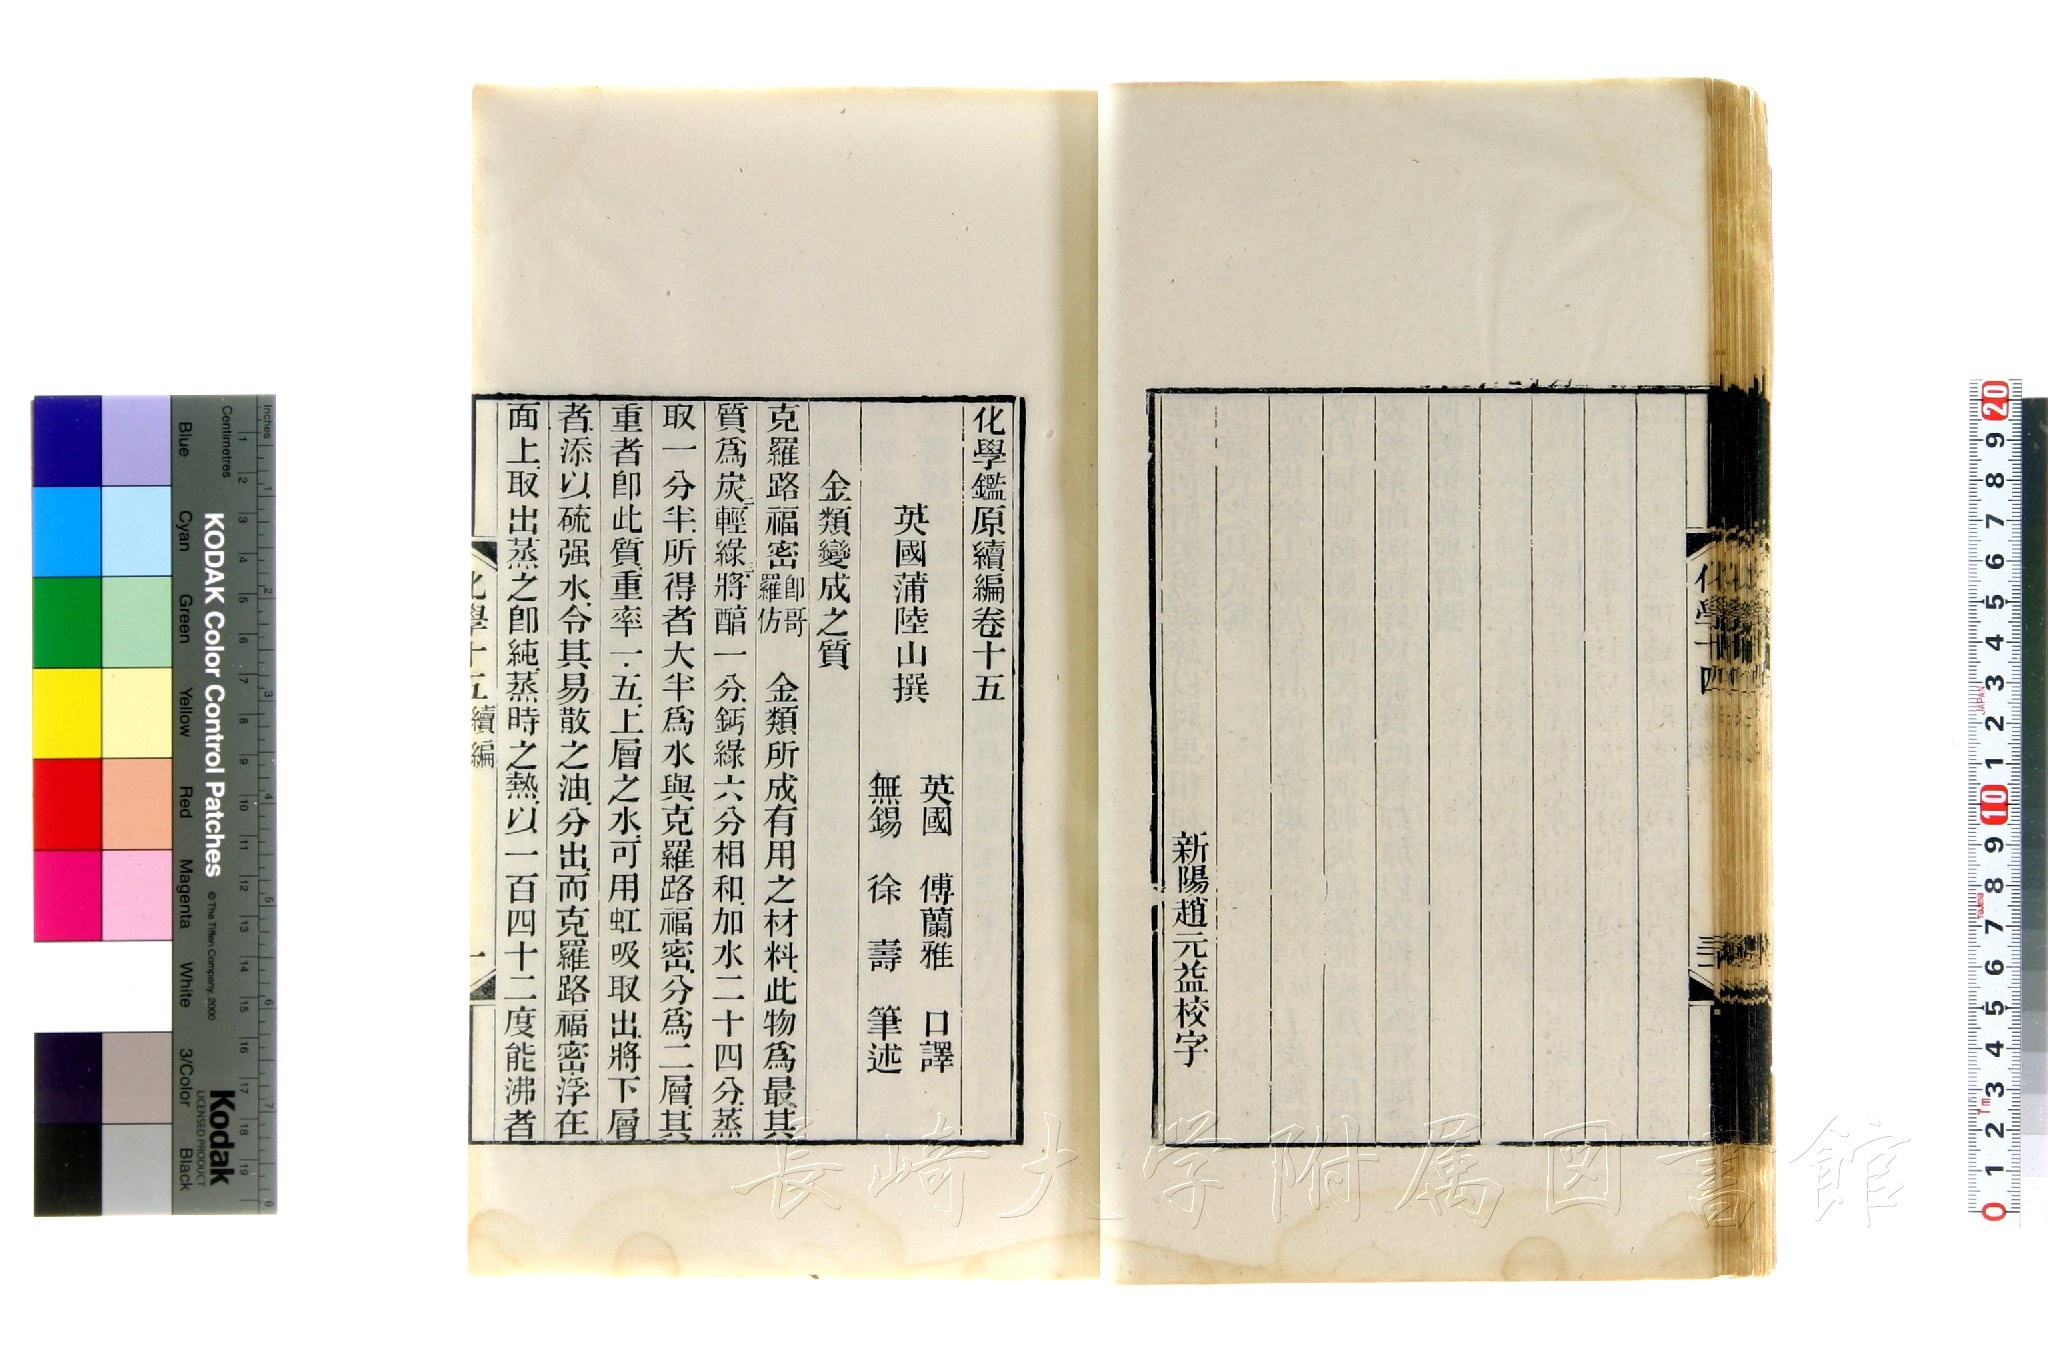 新陽趙元益校字
化學十四
化學鑑原續編卷十五
英國蒲陸山撰
英國 傅蘭雅 口譯
無錫 徐壽 筆述
金類變成之質
克羅路福密卽哥羅仿 金類所成有用之材料此物爲最其
質爲炭二輕綠三將醕一分鈣綠六分相和加水二十四分蒸
取一分半所得者大半爲水與克羅路福密分爲二層其
重者卽此質重率一·五上層之水可用虹吸取出將下層
者添以硫强水令其易散之油分出而克羅路福密浮在
面上取出蒸之卽純蒸時之熱以一百四十二度能沸者
化學十五續編
一
長崎大学附属図書館
KODAK Color Control Patches
© The Tiffen Company, 2000
Kodak
LICENSED PRODUCT
Inches
Centimetres
Blue
Cyan
Green
Yellow
Red
Magenta
White
3/Color
Black
1 2 3 4 5 6 7 8
1 2 3 4 5 6 7 8 9 10 11 12 13 14 15 16 17 18 19
20 9 8 7 6 5 4 3 2 1 10 9 8 7 6 5 4 3 2 1 0
JAPAN
1m